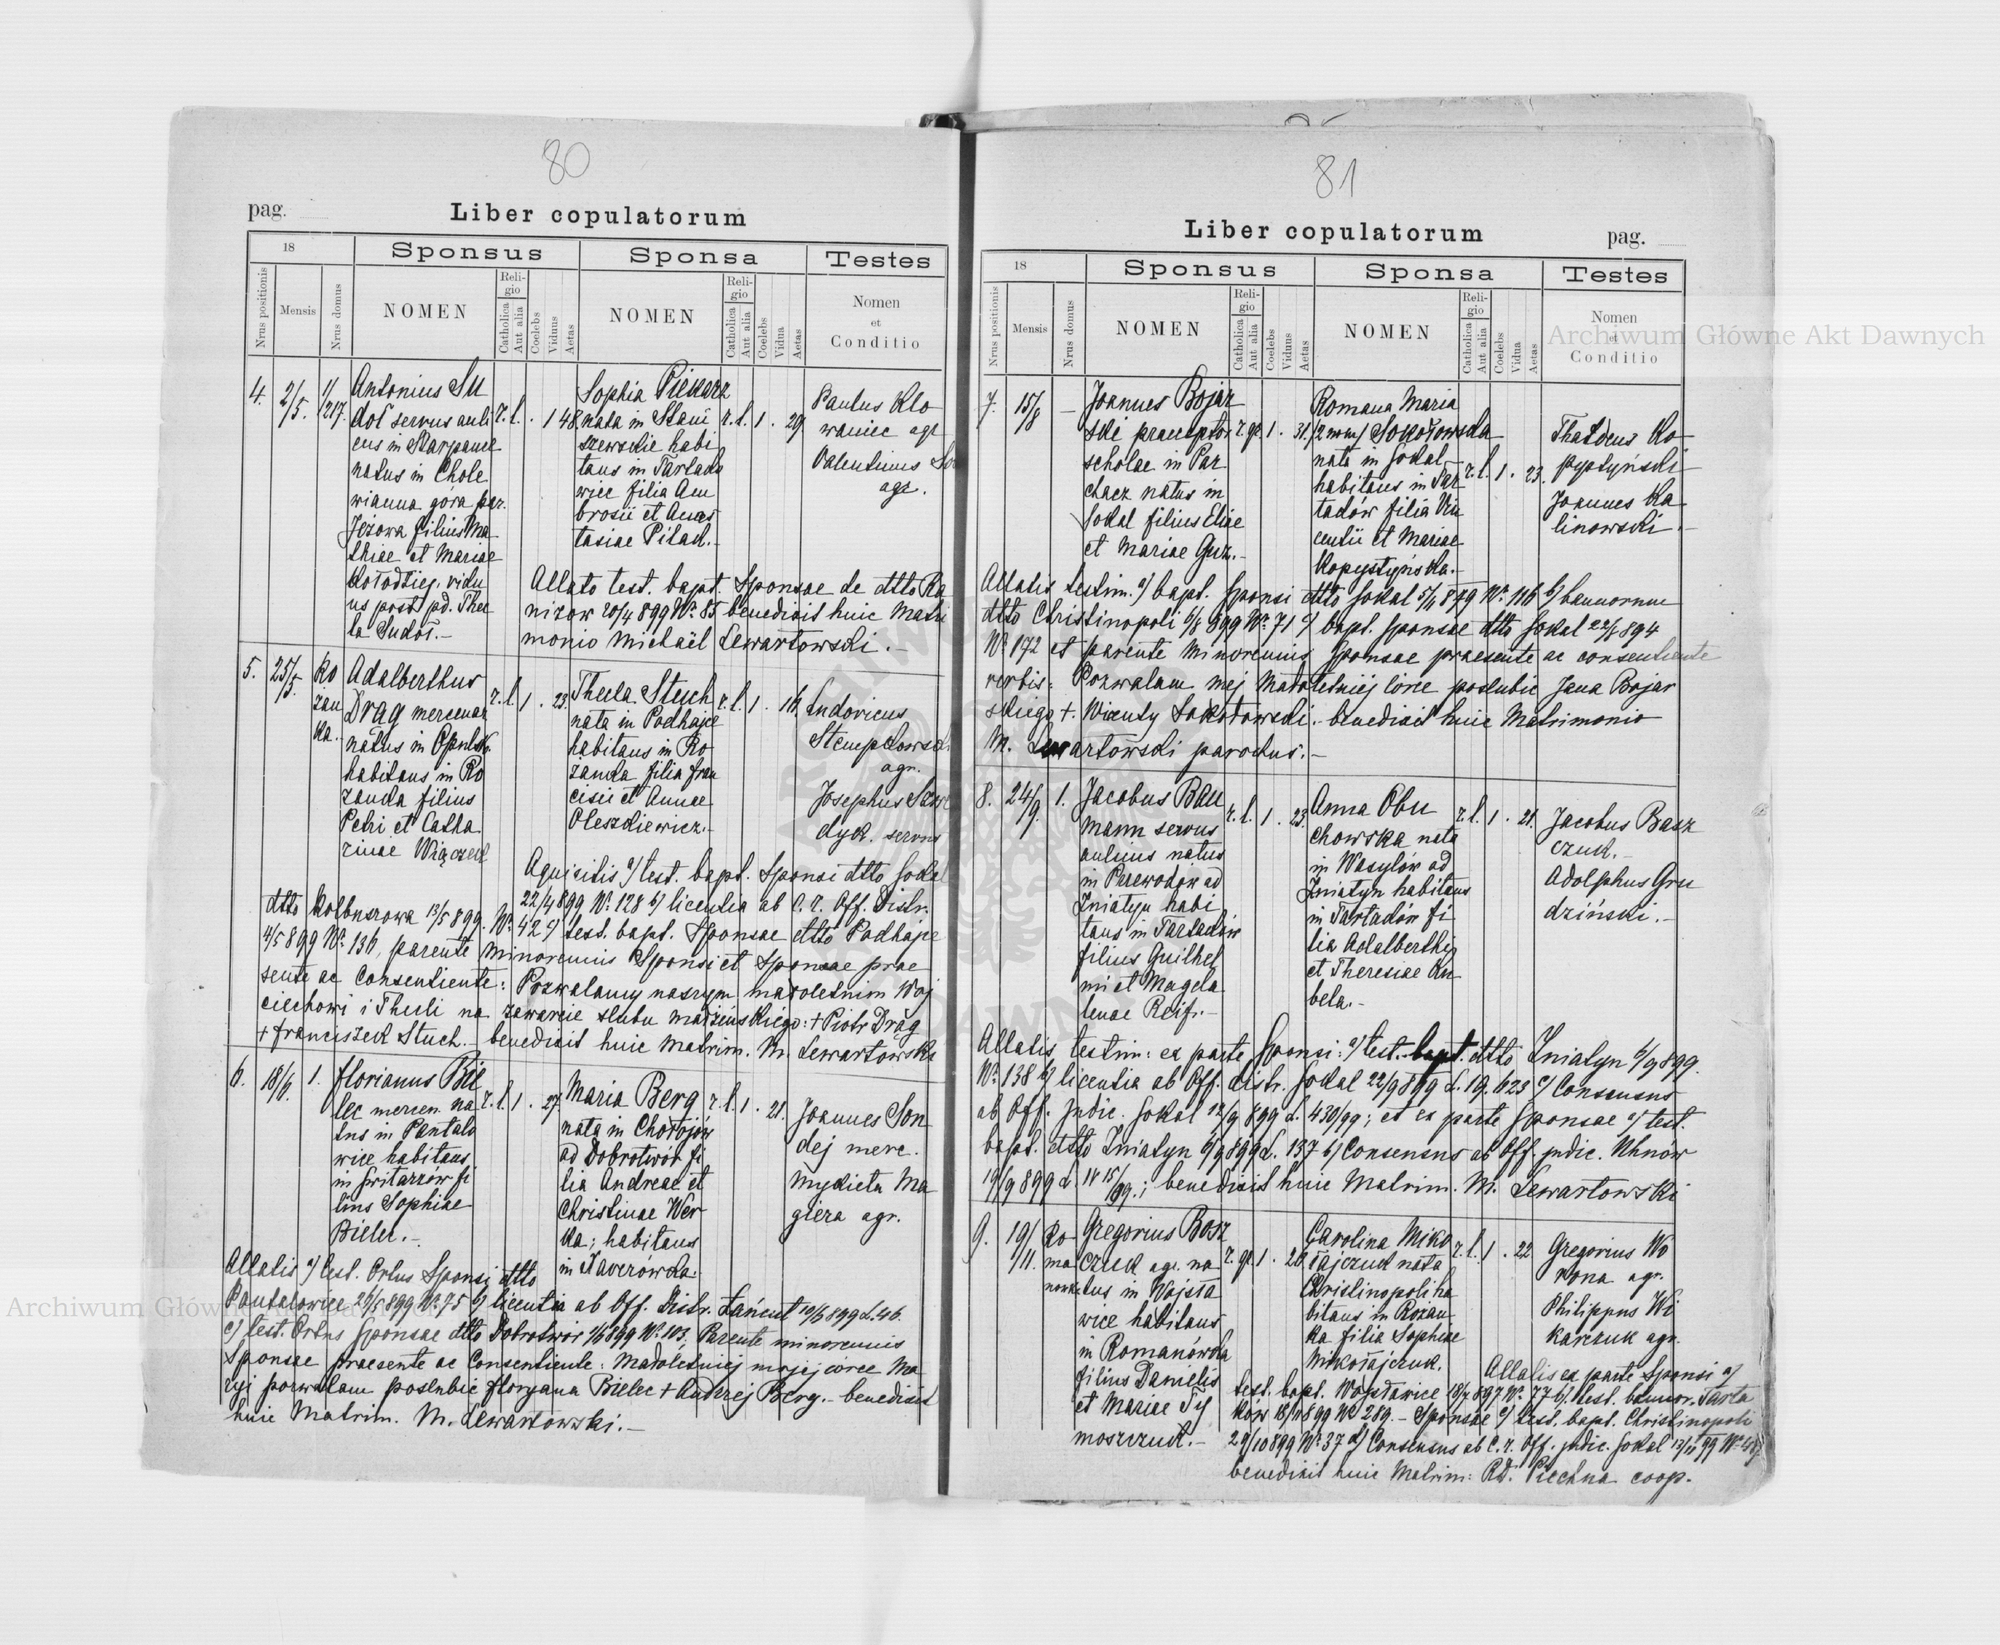 80
pag.
Liber copulatorum
18
Sponsus
Sponsa
Testes
Nrus positionis
Mensis
Nrus domus
NOMEN
Religio
Catholica
Aut alia
Coelebs
Viduus
Aetas
NOMEN
Religio
Catholica
Aut alia
Coelebs
Vidua
Aetas
Nomen
et
Conditio
4.
2/5.
1/217.
Antonius Su
doł servus auli
cus in
natus in Chole
wianna góra par.
Jeżowa filius Ma
thiae et Mariae
Kołodziej, vidu
us post pd. Thec
la Sudoł.-
r. l. . 1 48.
Sophia Piekarz
nata in Stani
szewskie habi
tans in Tartako
wiec filia Am
brosii et Anas
tasiae Pitak.-
r. l. 1 . 29.
Paulus Kło
waniec agr
Valentinus
agr.
Allato test. bapt. Sponsae de dtto Ra
nizow 20/4 899 Nr. 85 benedixit huic Matri
monio Michaël Lewartowski.-
5.
25/5.
Ro
zan
ka.
Adalberthus
Drąg mercenar
natus in
habitans in Ro
zanka filius
Petri et Catha
rinae Wiączek
r. l. 1 . 23.
Thecla Stuch
nata in Podhajce
habitans in Ro
zanka filia fran
cisci et Annae
Oleszkiewicz.-
r. l. 1 . 16.
Ludovicus
Stempkowski
agr.
Josephus
dyk. servus
Aquisitis a) test. bapt. Sponsi dtto Sokal
22/4 899 Nr. 128 b) licentia ab C. r. Off. Distr.
dtto Kolbuszowa 13/5 899. Nr. 42 c) test. bapt. Sponsae dtto Podhajce
4/5 899 Nr. 136, parente minorennis Sponsi et Sponsae prae
sente ac Consentiente: Pozwalamy naszym małoletnim Woj
ciechowi i Thecli na zawarcie ślubu małżeńskiego: + Piotr Drąg
+ franciszek Stuch.- benedixit huic Matrim. M. Lewartowski
6.
18/6.
1.
florianus Bie
lec mercen. na
tus in Pantalo
wice habitans
in Switarzow fi
lius Sophiae
Bielec.-
r. l. 1 . 27.
Maria Berg
nata in Chołojów
ad Dobrotwor fi
lia Andreae et
Christinae Wer
ka; habitans
in Xaverówka.
r. l. 1 . 21.
Joannes Son
dej merc.
Mykieta Ma
giera agr.
Allatis a) test. Ortus Sponsi dtto
Pantalowice 26/5 899 Nr. 75 b) licentia ab Off. Distr. Łańcut 10/6 899 L. 46.
c) test. Ortus Sponsae dtto Dobrotwór 1/6 899 Nr. 103. Parente minorennis
Sponsae praesente ac Consentiente: Małoletniej mojej córce Ma
ryi pozwalam poslubić floryana Bielec + Andrzej Berg.- benedixit
huic Matrim. M. Lewartowski.-
81
Liber copulatorum
pag.
18
Sponsus
Sponsa
Testes
Nrus positionis
Mensis
Nrus domus
NOMEN
Religio
Catholica
Aut alia
Coelebs
Viduus
Aetas
NOMEN
Religio
Catholica
Aut alia
Coelebs
Vidua
Aetas
Nomen
et
Conditio
7.
15/8
-
Joannes Bojar
ski praeceptor
scholae in Par
chacz natus in
Sokal filius Eliae
et Mariae Guz.-
r. gr. 1 . 31.
Romana Maria
(2 nom) Sokołowska
nata in Sokal
habitans in Tar
taków filia Vin
centii et Mariae
Kopystyńska.-
r. l. 1 . 23.
Thaddeus Ko-
pystyński-
Joannes Ka
linowski.-
Allatis testim. a) bapt. Sponsi dtto Sokal 5/ 879 Nr. 116 b) bannorum
dtto Christinopoli 6/8 899 Nr. 71 c) bapt. Sponsae dtto Sokal 22/ 894
Nr. 172 et parente minorennis Sponsae praesente ac consentiente
verbis: Pozwalam mej Małoletniej córce poslubić Jana Bojar
skiego +. Wicenty Sokołowski.- benedixit huic Matrimonio
M. Lewartowski parochus.-
8.
24/9.
1.
Jacobus Bau
mann servus
aulicus natus
in Przewodów ad
Zniatyn habi
tans in Tartaków
filius Guilhel
mi et Magda
lenae Reif.-
r. l. 1 . 23.
Anna Obu
chowska nata
in Wasylów ad
Zniatyn habitans
in Tartaków fi
lia Adalberthi
et Theresiae Ku
bela.-
r. l. 1 . 21.
Jacobus Basz
czuk.-
Adolphus Gru
dziński.-
Allatis testim: ex parte Sponsi: a) test. bapt. dtto Zniatyn 6/9 899.
Nr. 138 b) licentia ab Off. distr. Sokal 22/9 899 L. 19. 623 c) Consensus
ab Off. Judic. Sokal 12/9 899 L. 430/99; et ex parte Sponsae a) test.
bapt. dtto Zniatyn 6/9 899 L. 137 b) Consensus ab Off. judic. Uhnów
19/9 899 L. 14 15/99.; benedixit huic Matrim. M. Lewartowski
9.
19/11.
Ro
ma
nowka
Gregorius Bosz
czuk agr. na
tus in Wojsła
wice habitans
in Romanówka
filius Danielis
et Mariae Ty
moszczuk.-
r. gr. 1 . 26
Carolina Miko
łajczuk nata
Christinopoli ha
bitans in Rozan
ka filia Sophiae
Mikołajczuk.
r. l. 1 . 22
Gregorius Wo
rona agr.
Philippus Wi
karczuk agr.
Allatis ex parte Sponsi a)
test. bapt. Wojsławice 18/ 897 Nr. 77 b) test. bannor. Tarta
ków 18/11 899 Nr 289.- Sponsae c) test. bapt. Christinopoli
29/10 899 Nr. 37 d) Consensus ab C. r. Off. judic. Sokal
benedixit huic Matrim: Rd. Piechna coop.
Archiwum Główne Akt Dawnych
Archiwum Główne Akt Dawnych